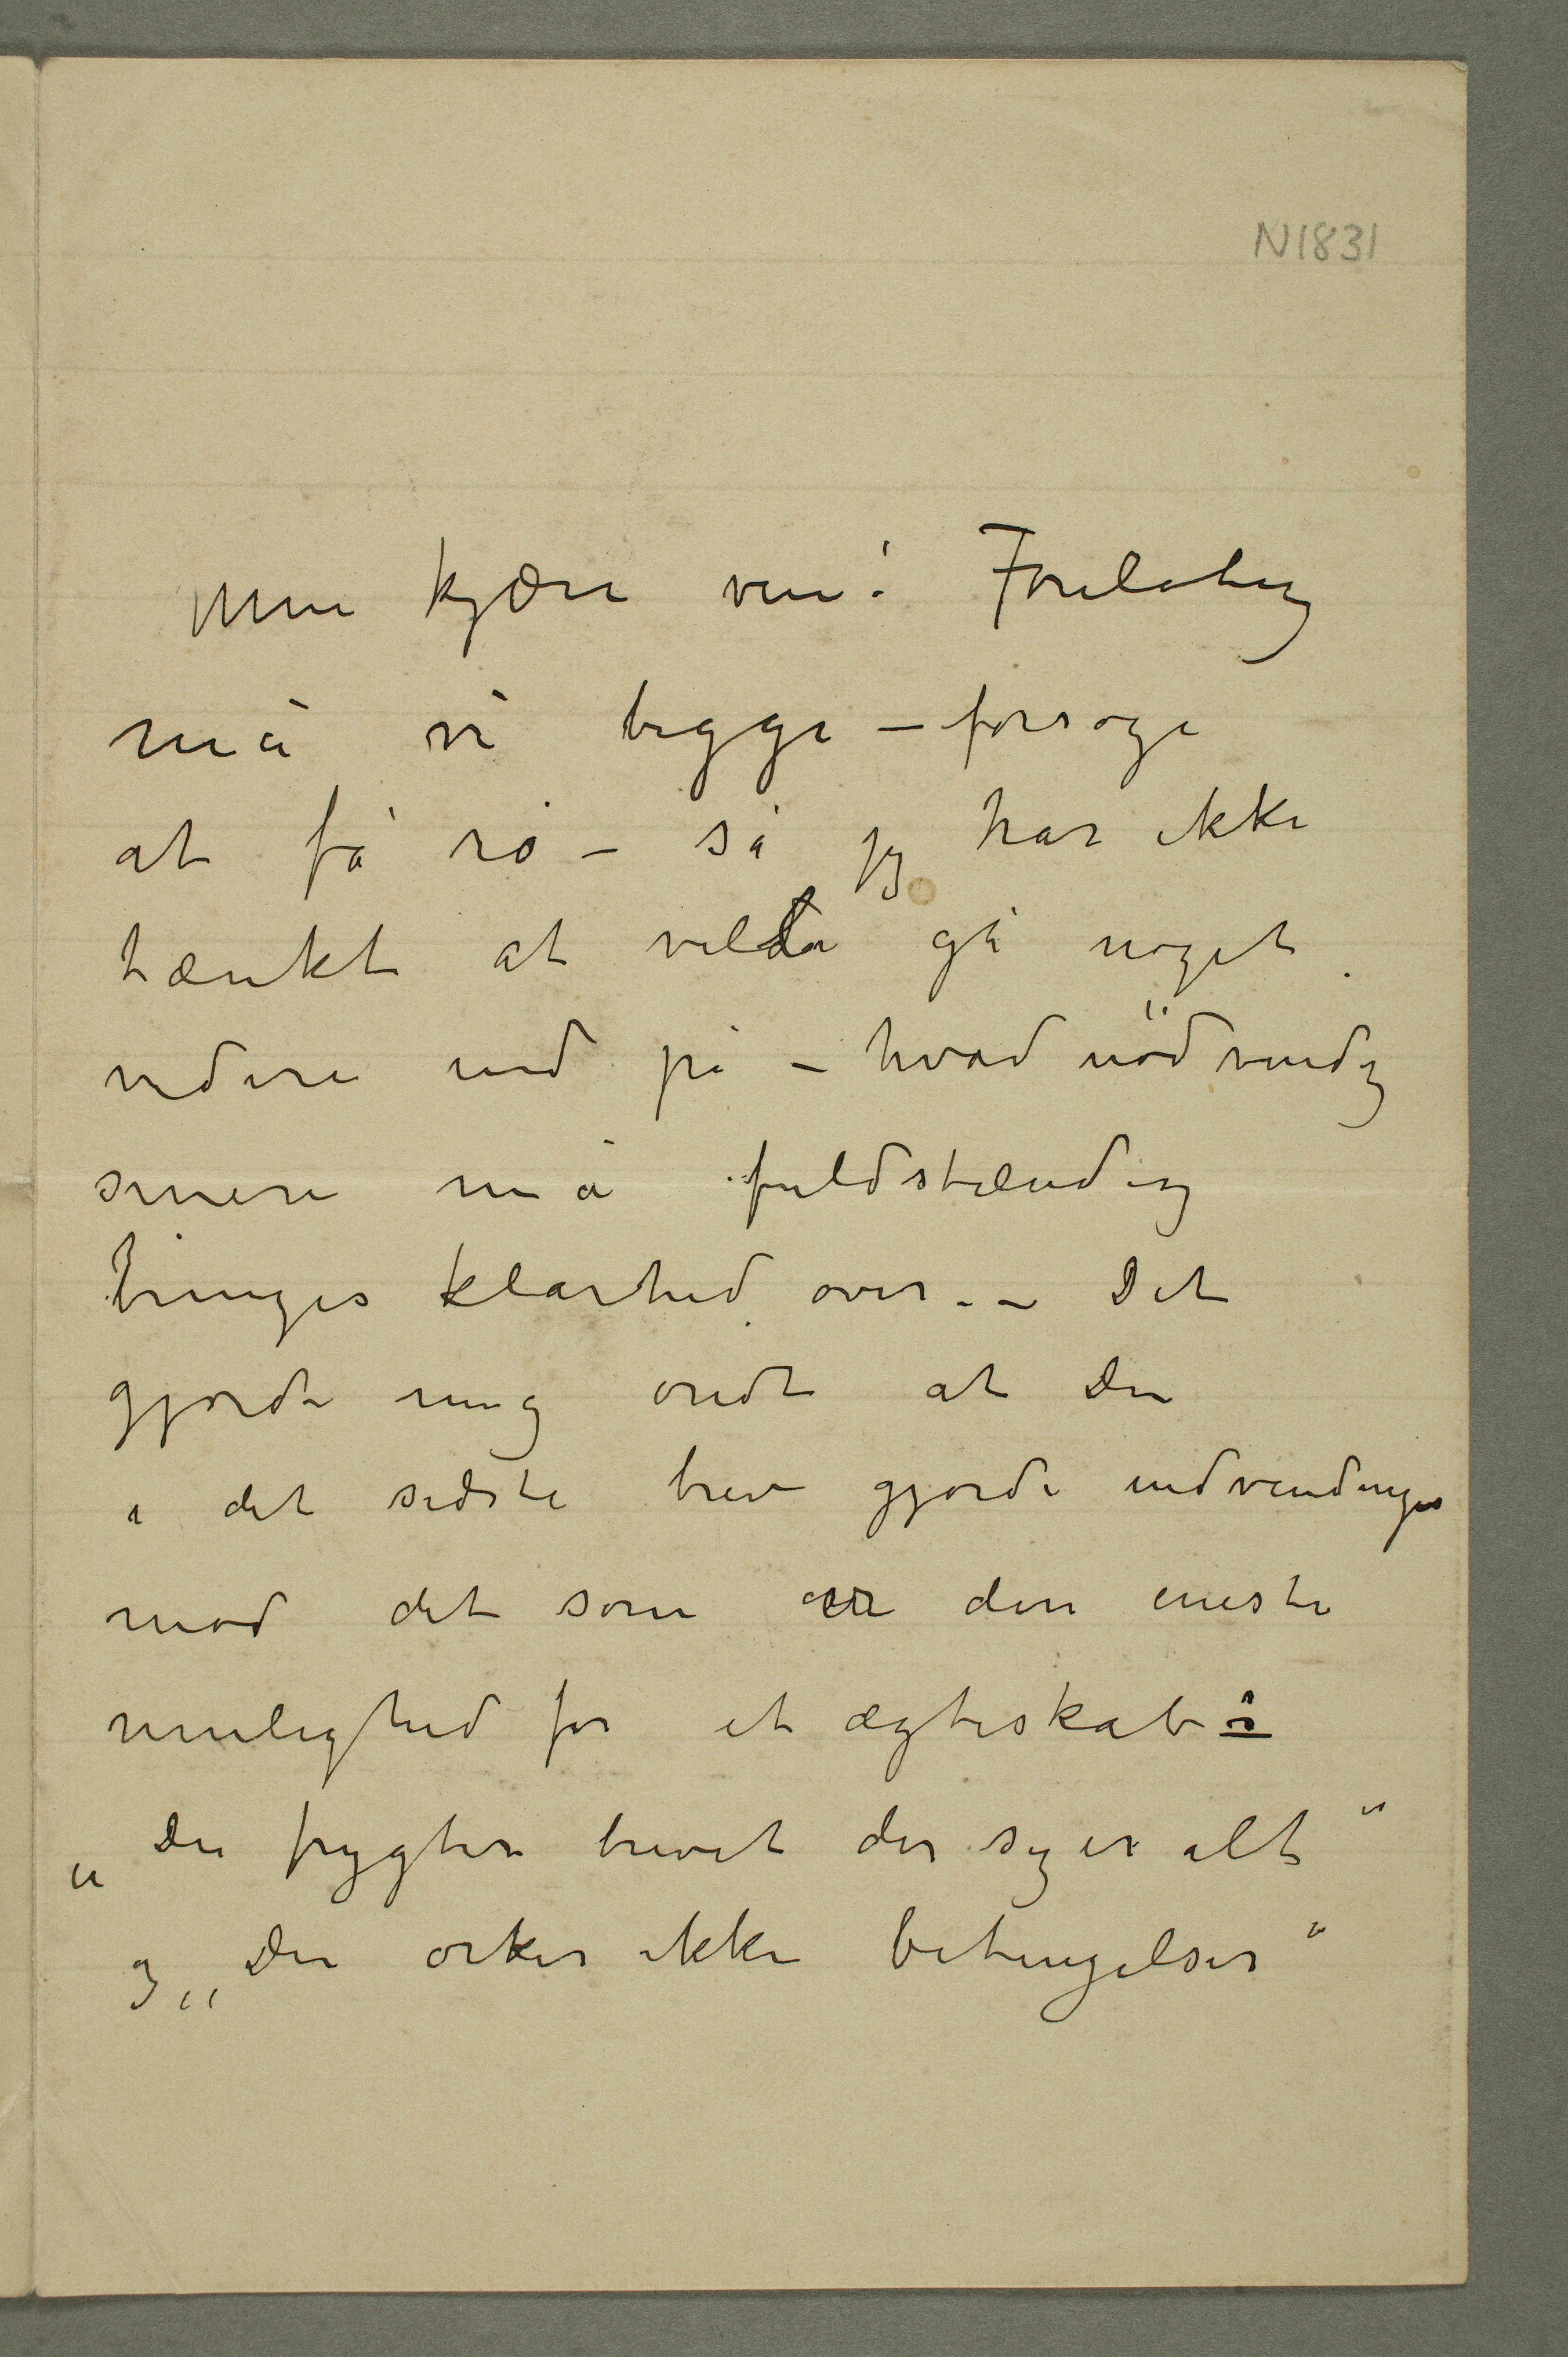 N1831
Min kjære ven! Foreløbig
må vi begge – forsøge
at få ro – så jeg har ikke
tænkt at vilde gå noget
videre ind på – hvad nödvendig
senere må fuldstændig
bringes klarhed over. – Det
gjorde mig ondt at Du
i det sidste brev gjorde indvendinger
mod det som er den eneste
mulighed for et ægteskab:
„Du frygter brevet der siger alt“
og „Du orker ikke betingelser“